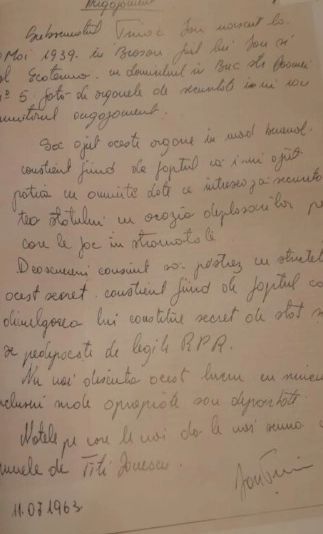 Angajament
Subsemnatul Țiriac Ion născut la
Mai 1939 în Brașov fiul lui Ion și
al Ecaterina cu domiciliul în Buc str
5. față de organele de securitate îmi iau
următorul angajament.
Voi ajut aceste organe în mod benevol
conștient fiind de faptul că îmi ajut
patria cu anumite date ce interesează securita
tea statului cu ocazia deplasărilor pe
care le fac în străinătate.
Deasemeni consimt să păstrez cu strictețe
acest secret conștient fiind de faptul că
divulgarea lui constitue secret de stat
se pedepsește de legile R.P.R.
Nu voi discuta acest lucru cu nimeni
inclusiv rude apropiate sau depărtate
Notele pe care le voi da le voi semna
numele de Titi Ionescu.
11.07.1963